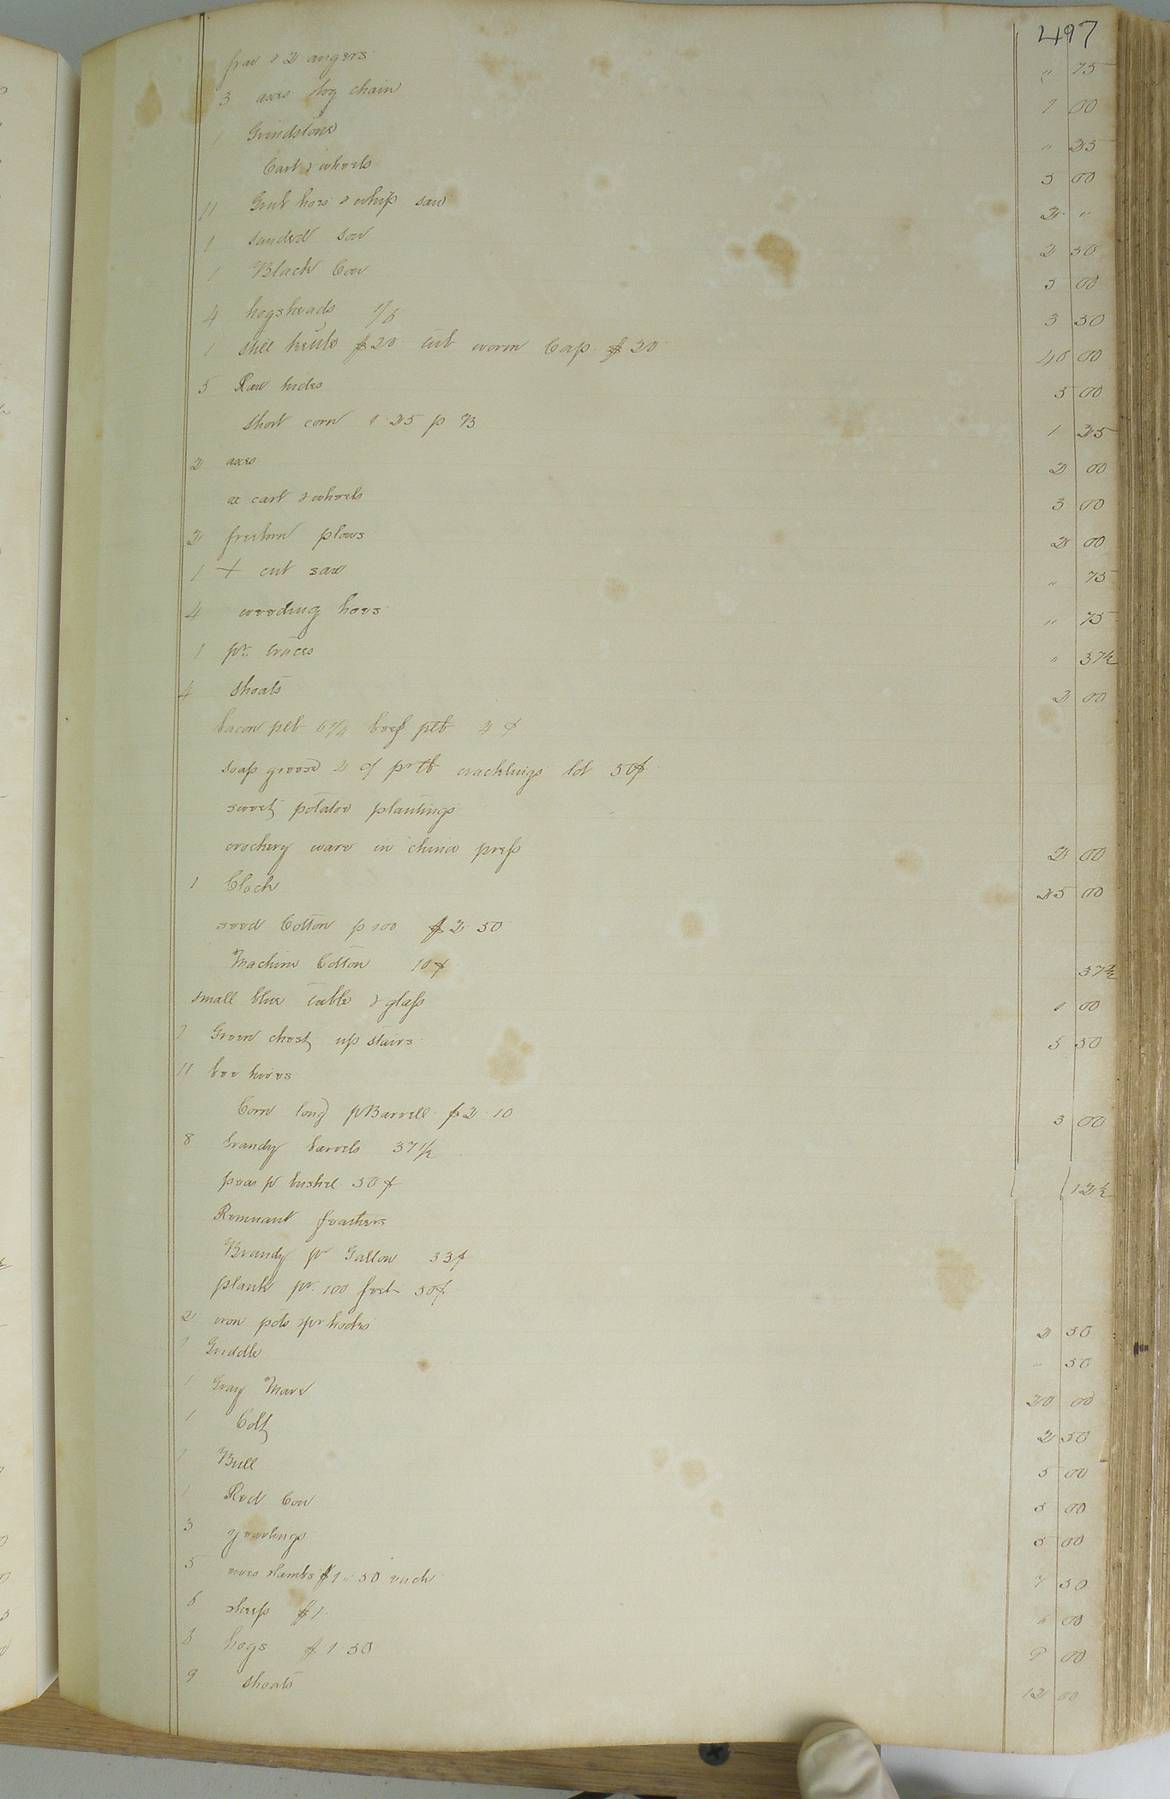 497
frow & 2 augers " 75
3 axes log chain 1 00
1 Grindstone " 25
Cart & wheels 5 00
11 Grub hoes & whip saw 2 "
1 sanded sow 2 50
1 Black Cow 5 00
4 hogsheads 3 50
1 still kettle $20 tub worm Cap $20 40 00
5 Raw hides 5 00
Short corn 1 25 p B 1 25
2 axes 2 00
ox cart & wheels 3 00
2 freeborn plows 2 00
1 + cut saw " 75
4 weeding hoes " 75
1 pr. traces " 37½
4 Shoats 2 00
bacon plb 6¼ beef plb 4 ¢
soap grease 2 ¢ pr lb cracklings lot 50¢
sweet potatoe plantings
crockery ware in china press 2 00
1 Clock 25 00
seed Cotton p 100 $2 50
Machine Cotton 10¢ 37½
small blue table & glass 1 00
1 Green chest up stairs 5 50
11 bee hives
Corn long p Barrell $2 10 3 00
8 brandy barrels 37½
peas pr bushel 50¢ 12½
Remnant feathers
Brandy pr Gallon 33¢
plank pr. 100 feet 50¢
2 iron pots pr hooks 2 50
1 Griddle - 50
1 Gray Mare 20 00
1 Colt 2 50
1 Bull 5 00
1 Red Cow 5 00
3 yearlings 5 00
5 ewes & lambs $1 " 50 each 7 50
6 sheep $1 6 00
8 hogs $1 50 9 00
9 Shoats 12 00